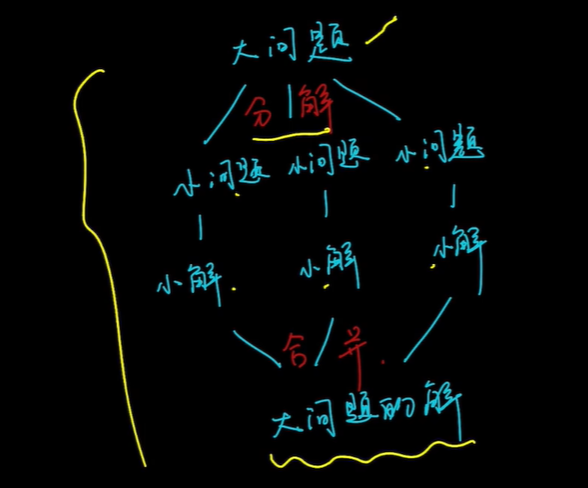 大问题
分解
小问题 小问题 小问题
小解 小解 小解
合并
大问题的解